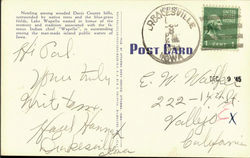 Nestling among wooded Davis County hills,
surrounded by native trees and the blue-grass
fields, Lake Wapello named in honor of the
memory and tradition associated with the fa-
mous Indian chief "Wapello", is outstanding
among the man-made inland public waters of
Iowa.
DRAKESVILLE
IOWA
POST CARD
DEC 9 45
Hi Pal.
Yours truly
Write soon.
Hazel
Drakesville
Iowa
E. W.
222 - 14th St
Vallejo
California